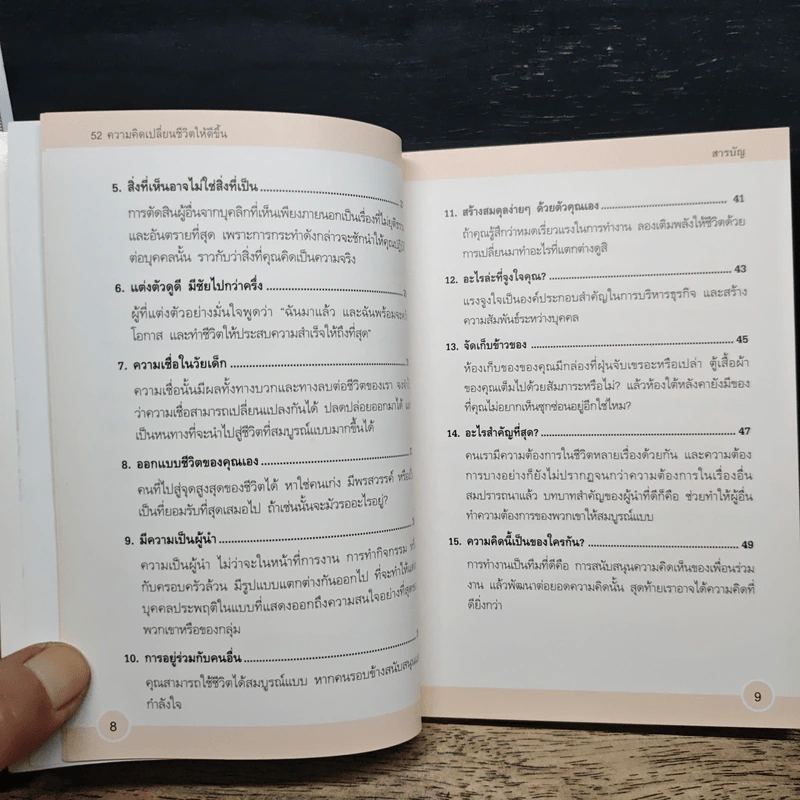 52 ความคิดเปลี่ยนชีวิตให้ดีขึ้น
5. สิ่งที่เห็นอาจไม่ใช่สิ่งที่เป็น
การตัดสินผู้อื่นจากบุคลิกที่เห็นเพียงภายนอกเป็นเรื่องที่ไม่
และอันตรายที่สุด เพราะการกระทำดังกล่าวจะชักนำให้คุณ
ต่อบุคคลนั้น ราวกับว่าสิ่งที่คุณคิดเป็นความจริง
6. แต่งตัวดูดี มีชัยไปกว่าครึ่ง
ผู้ที่แต่งตัวอย่างมั่นใจพูดว่า "ฉันมาแล้ว และฉันพร้อมจะ
โอกาส และทำชีวิตให้ประสบความสำเร็จให้ถึงที่สุด"
7. ความเชื่อในวัยเด็ก
ความเชื่อนั้นมีผลทั้งทางบวกและทางลบต่อชีวิตของเรา
ว่าความเชื่อสามารถเปลี่ยนแปลงกันได้ ปลดปล่อยออกมาได้
เป็นหนทางที่จะนำไปสู่ชีวิตที่สมบูรณ์แบบมากขึ้นได้
8. ออกแบบชีวิตของคุณเอง
คนที่ไปสู่จุดสูงสุดของชีวิตได้ หาใช่คนเก่ง มีพรสวรรค์
เป็นที่ยอมรับที่สุดเสมอไป ถ้าเช่นนั้นจะมัวรออะไรอยู่?
9. มีความเป็นผู้นำ
ความเป็นผู้นำ ไม่ว่าจะในหน้าที่การงาน การทำกิจกรรม
กับครอบครัวล้วน มีรูปแบบแตกต่างกันออกไป ที่จะทำให้
บุคคลประพฤติในแบบที่แสดงออกถึงความสนใจอย่างที่สุด
พวกเขาหรือของกลุ่ม
10. การอยู่ร่วมกับคนอื่น
คุณสามารถใช้ชีวิตได้สมบูรณ์แบบ หากคนรอบข้างสนับสนุน
กำลังใจ
8
สารบัญ
11. สร้างสมดุลง่ายๆ ด้วยตัวคุณเอง 41
ถ้าคุณรู้สึกว่าหมดเรี่ยวแรงในการทำงาน ลองเติมพลังให้ชีวิตด้วย
การเปลี่ยนมาทำอะไรที่แตกต่างดูสิ
12. อะไรล่ะที่จูงใจคุณ? 43
แรงจูงใจเป็นองค์ประกอบสำคัญในการบริหารธุรกิจ และสร้าง
ความสัมพันธ์ระหว่างบุคคล
13. จัดเก็บข้าวของ 45
ห้องเก็บของของคุณมีกล่องที่ฝุ่นจับเขรอะหรือเปล่า ตู้เสื้อผ้า
ของคุณเต็มไปด้วยสัมภาระหรือไม่? แล้วห้องใต้หลังคายังมีของ
ที่คุณไม่อยากเห็นซุกซ่อนอยู่อีกใช่ไหม?
14. อะไรสำคัญที่สุด? 47
คนเรามีความต้องการในชีวิตหลายเรื่องด้วยกัน และความต้อง
การบางอย่างก็ยังไม่ปรากฏจนกว่าความต้องการในเรื่องอื่น
สมปรารถนาแล้ว บทบาทสำคัญของผู้นำที่ดีก็คือ ช่วยทำให้ผู้อื่น
ทำความต้องการของพวกเขาให้สมบูรณ์แบบ
15. ความคิดนี้เป็นของใครกัน? 49
การทำงานเป็นทีมที่ดีคือ การสนับสนุนความคิดเห็นของเพื่อนร่วม
งาน แล้วพัฒนาต่อยอดความคิดนั้น สุดท้ายเราอาจได้ความคิดที่
ดียิ่งกว่า
9